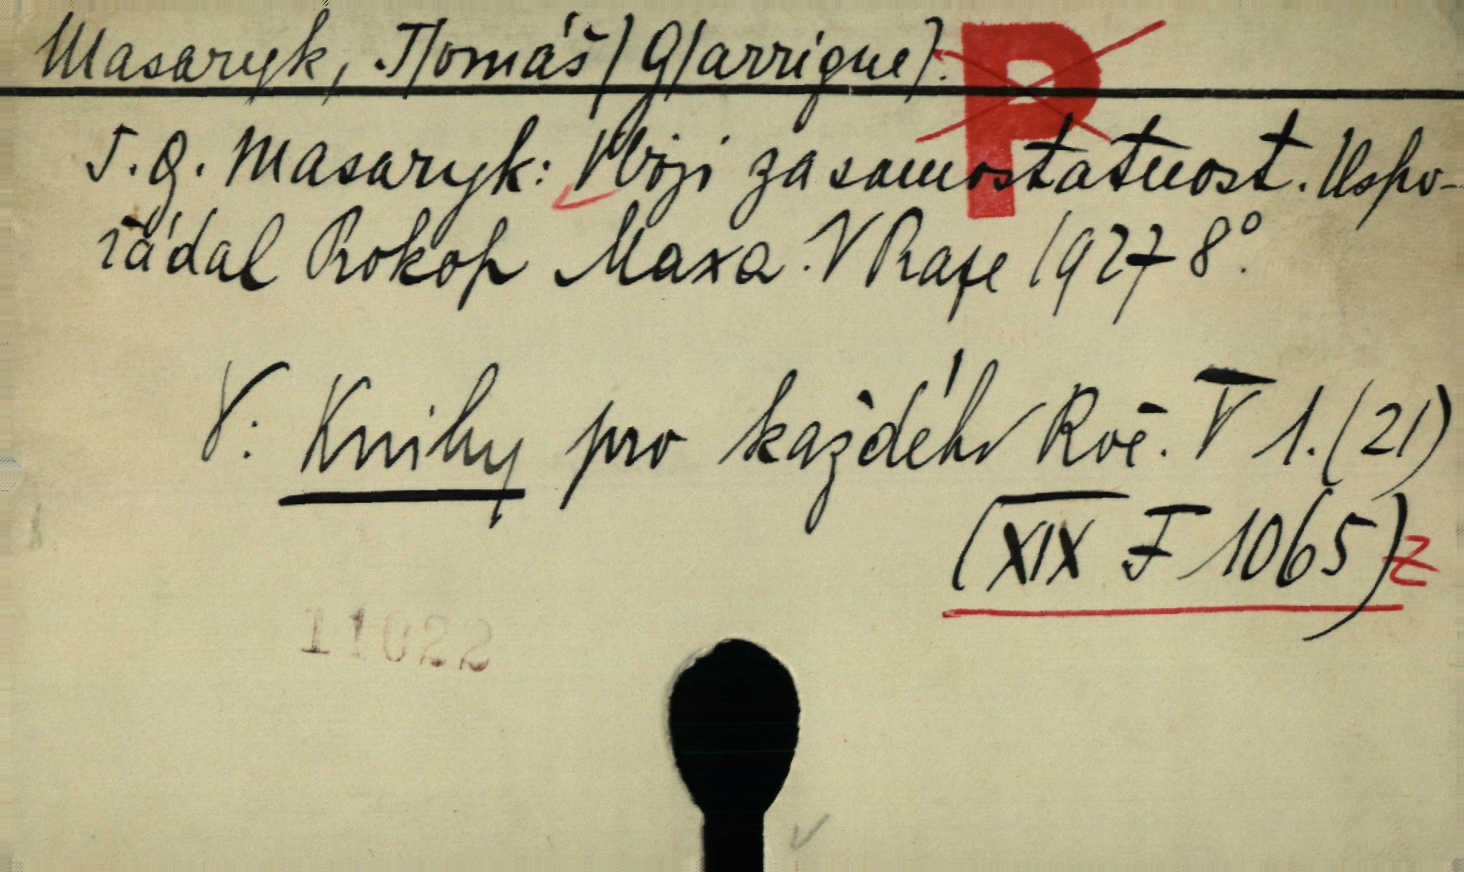 Masaryk, T/omáš/ G/arrigue/.
P
T. G. Masaryk: V boji za samostatnost. Uspo-
řádal Prokop Maxa. V Praze 1927 8°.
V: Knihy pro každého Roč. V 1. (21)
(XIX F 1065) Z
11022